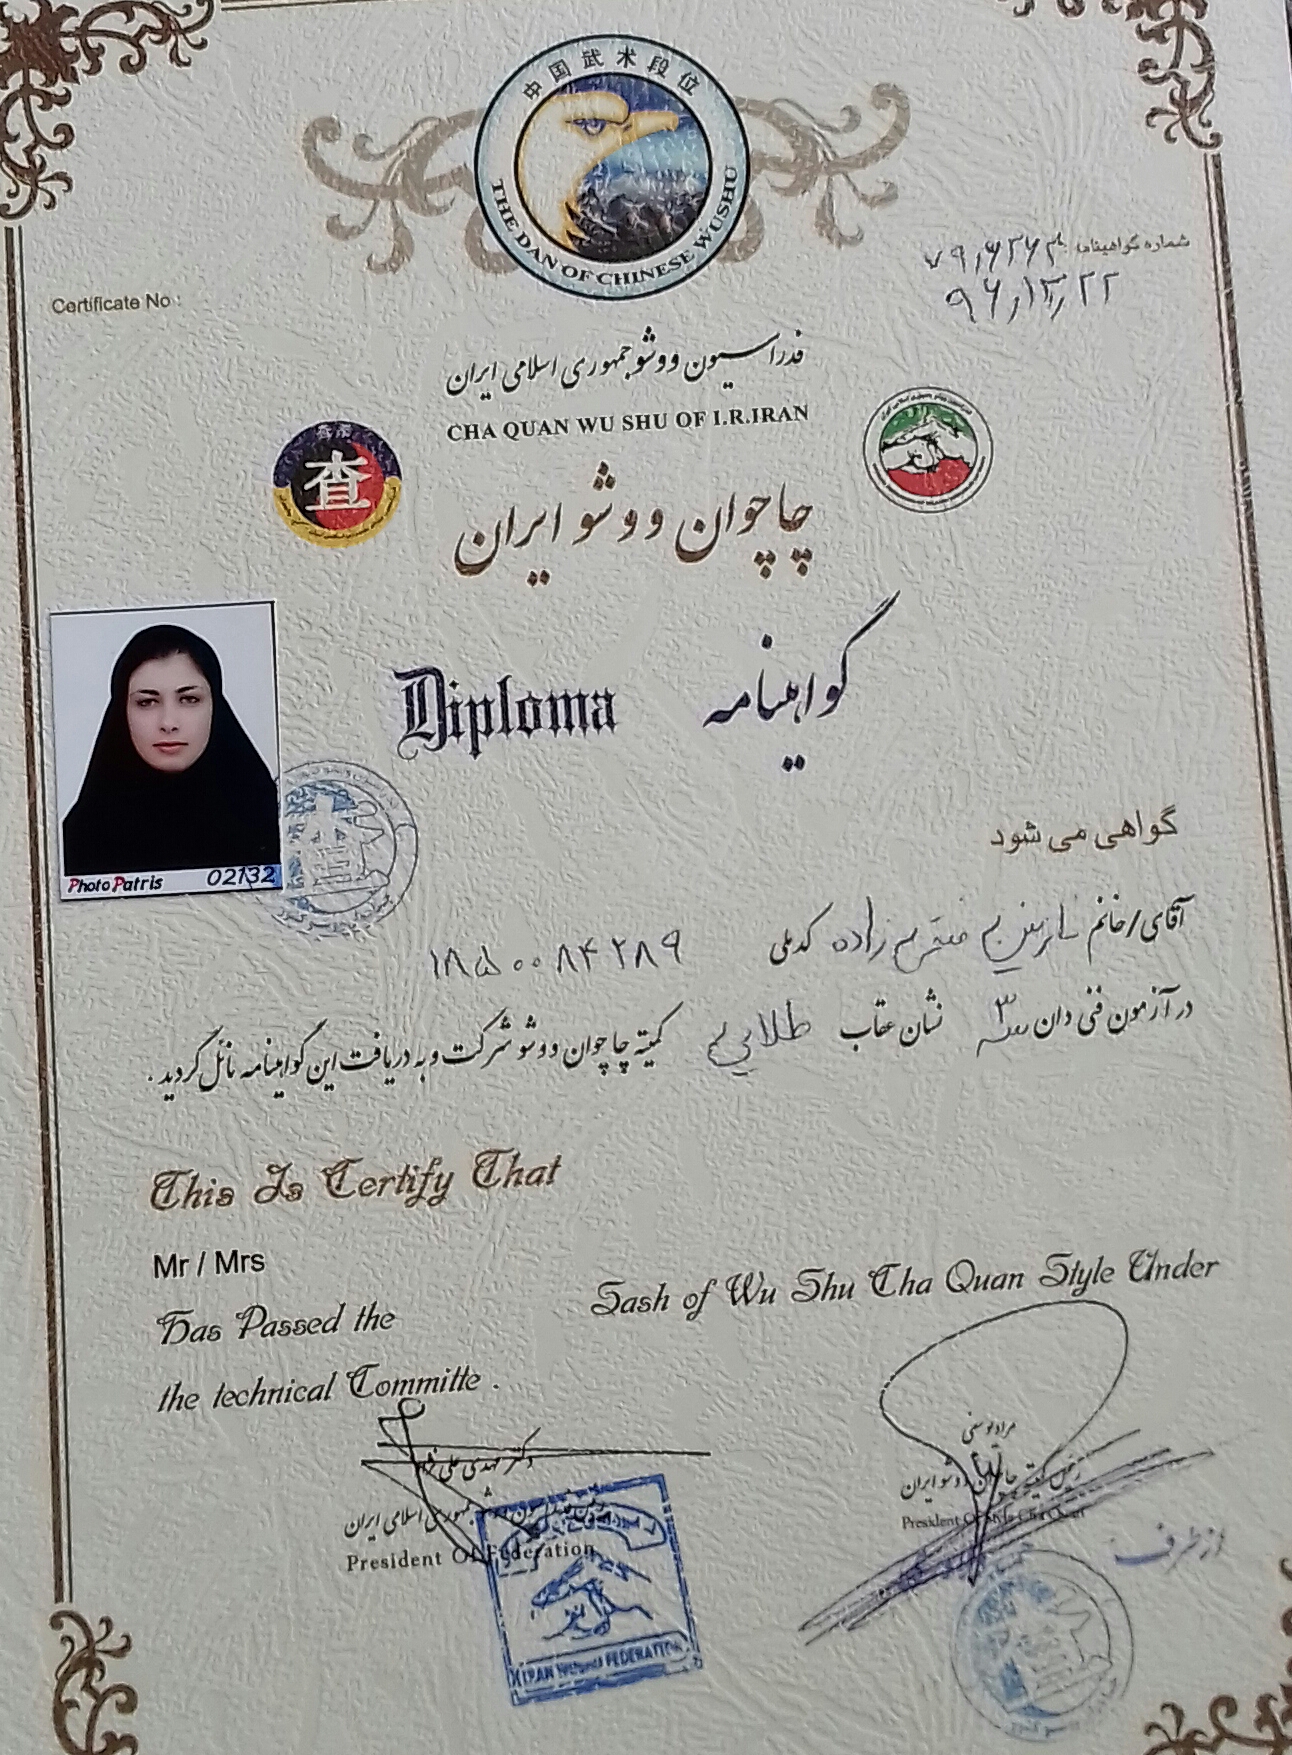 中国武术段位
THE DAN OF CHINESE WUSHU
شماره گواهینامه:
۹۶/۱۲/۲۲
Certificate No :
فدراسیون ووشو جمهوری اسلامی ایران
CHA QUAN WU SHU OF I.R.IRAN
查
چاچوان ووشو ایران
Diploma گواهینامه
Photo Patris 02132
گواهی می شود
آقای/خانم زاده کدملی ۱۸۵۰۰۸۴۲۸۹
در آزمون فنی دان سه ۳ نشان عقاب طلایی کمیته چاچوان ووشو شرکت و به دریافت این گواهینامه نائل گردید .
This Is Certify That
Mr / Mrs
Has Passed the Sash of Wu Shu Cha Quan Style Under
the technical Committe .
دکتر مهدی علی نژاد
جمهوری اسلامی ایران
President Of Federation
IRAN WUSHU FEDERATION
مراد یوسفی
رئیس کمیته چاچوان ووشو ایران
President Of Style Cha Quan
از طرف